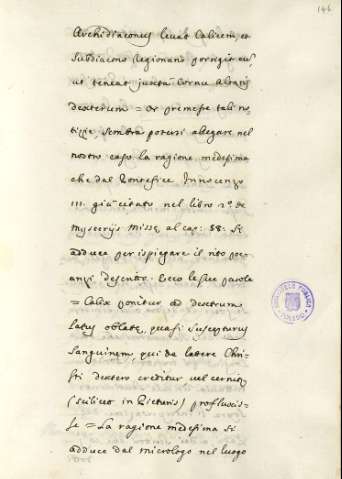 146
Archidiaconus levat Calicem, et
Subdiacono Regionario porrigit eu᷉,
ut teneat juxta Cornu Altaris
dexterum = Or premesse tali no-
tizie, sembra potersi allegare nel
nostro caso la ragione medesima
che dal Pontefice Innocenzo
III. già citato nel libro 2º de
Mysterijs Missæ al cap: 58: si
adduce per ispiegare il rito poc'
anzi descritto. Ecco le sue parole
= Calix ponitur ad dextrum
latus oblatæ, quasi suscepturus
Sanguinem, qui de latere Chri-
sti dextero creditur vel cernitur
(scilicet in Picturis) profluxis-
se = La ragione medesima si
adduce dal micrologo nel luogo
BIBLIOTECA PUBLICA
TOLEDO